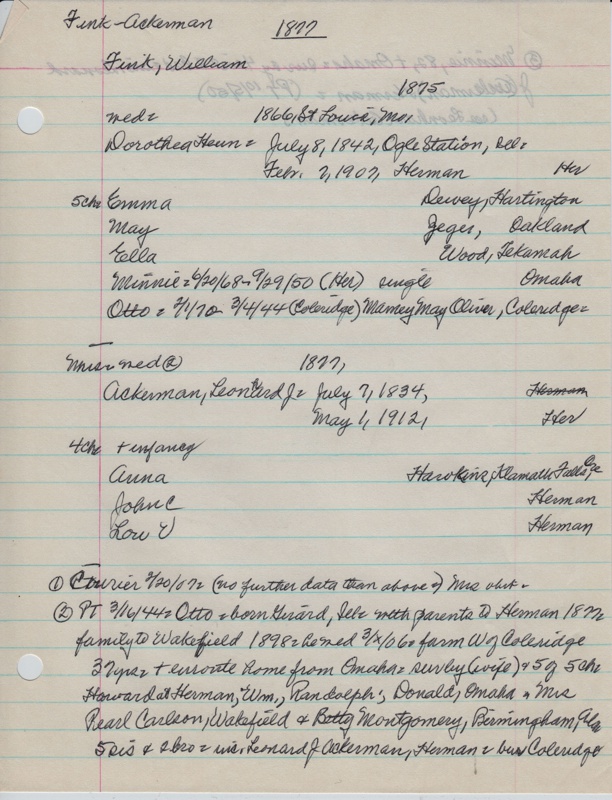 Fink-Ackerman 1877
Fink, William
1875
med= 1866, St Louis, Mo,
Dorothea Heun= July 8, 1842, Ogle Station, Ill=
Febr. 7, 1907, Herman Her
5ch= Emma Dewey, Hartington
May Jeger, Oakland
Ella Wood, Tekamah
Minnie= 6/20/68- 9/29/50 (Her) single Omaha
Otto= 2/1/70- 3/4/44 (Coleridge) Mamey May Oliver, Coleridge=
Mrs= med ② 1877,
Ackerman, Leonard J= July 7, 1834, Herman
May 1, 1912, Her
4ch= + infancy
Anna Hawkins, Klamath Falls, Ore
John C Herman
Lou V Herman
① Courier 2/20/07= (no further data than above=) Mrs obit=
② PT 3/16/44= Otto= born Girard, Ill= with parents to Herman 1877
family to Wakefield 1898= he med 3/ /06= farm W of Coleridge
37yrs= + enroute home from Omaha= surv by (wife) + 5 of 5ch=
Howard at Herman, Wm, Randolph; Donald, Omaha + Mrs
Pearl Carlson, Wakefield & Betty Montgomery, Birmingham, Ala
5 sis & 2 bro= inc. Leonard J Ackerman, Herman= bur Coleridge